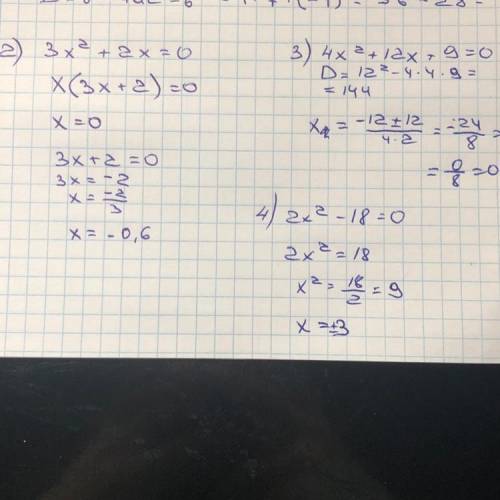 2) 3x² + 2x = 0
x(3x + 2) = 0
x = 0
3x + 2 = 0
3x = -2
x = -2/3
x = -0,6
3) 4x² + 12x + 9 = 0
D = 12² - 4 · 4 · 9 =
= 144
x = -12 ± 12 / 4·2 = -24/8 =
= 0/8 = 0
4) 2x² - 18 = 0
2x² = 18
x² = 18/2 = 9
x = ±3